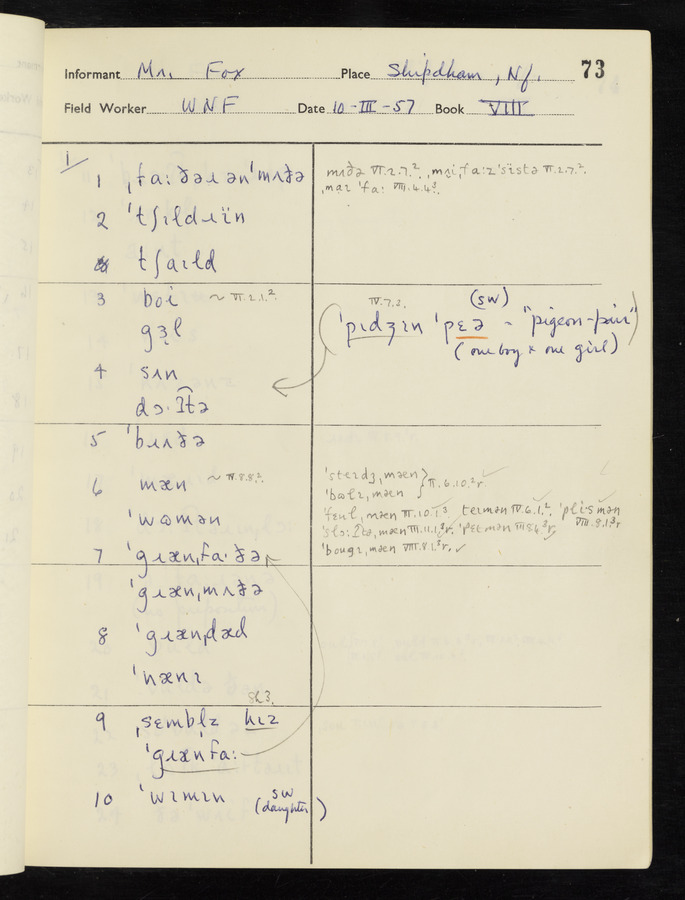 Informant Mr. Fox Place Shipdham, Nf. 73
Field Worker WNF Date 10-III-57 Book VIII
1
1 ˌfaː ðəɹ ən ˈmʌðə
2 ˈtʃɪldɹïn
tʃaɪld
3 bɔi ~ VI.2.1.²
gɜ̣l
4 sʌn
dɔ·ʔtə
5 ˈbɹʌðə
6 mæn
ˈwʊmən
7 ˈgɹænˌfa·ðə
ˈgɹænˌmʌðə
8 ˈgɹænˌdæd
ˈnænɪ
9 ˌsɛmblz hɪz SR3.
ˈgɹænfaː
10 ˈwɪmɪn (SW daughter)
mʌðə VI.2.7.², mɑi ˌfaːz ˈsïstə VI.2.7.².
ˌmaɪ ˈfaː VIII.4.4³.
IV.7.2. (SW)
(ˈpɪdʒɪn ˈpɛə ~ "pigeon-pair")
(one boy + one girl)
ˈsteɪdʒˌmæn
ˈbætɪˌmæn } II.6.10.²r
ˈfɛulˌmæn III.10.1³ teɪmən IV.6.1.². ˈplismən VIII.8.1³r
ˈslɔːʔtəˌmæn III.11.1³r. ˈpɛtmən
ˌmæn VIII.8.1.³r.